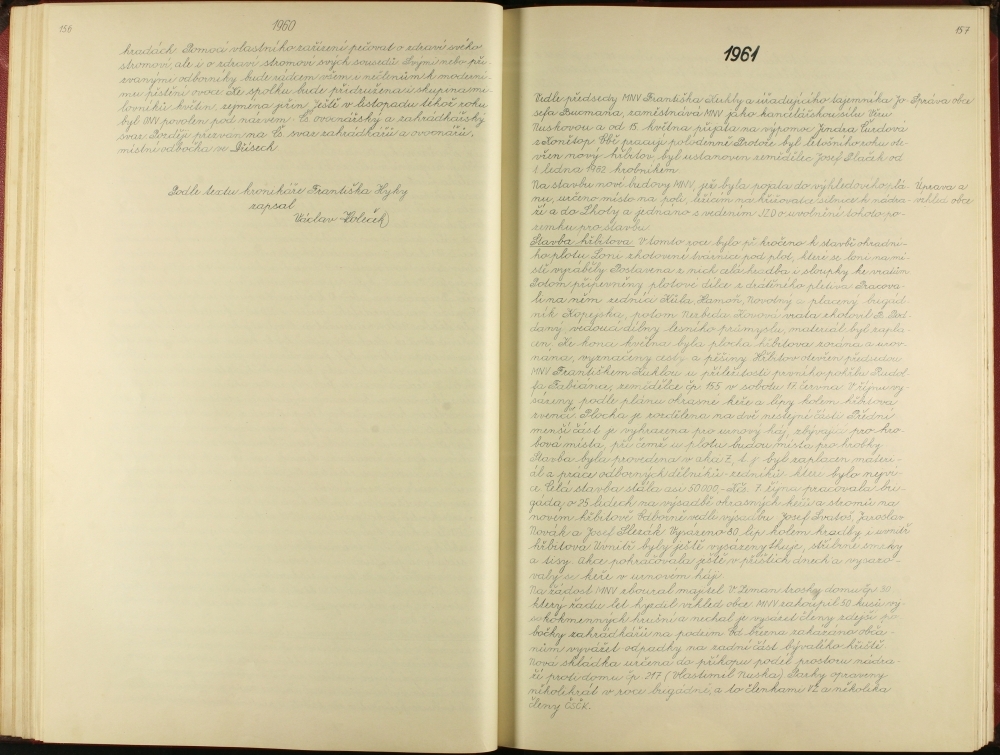 156
1960
hradách. Pomocí vlastního zařízení pečovat o zdraví svého
stromoví, ale i o zdraví stromoví svých sousedů. Svými nebo při-
zvanými odborníky bude rádcem všem i nečlenům k moderní-
mu pěstění ovoce. Ke spolku bude přidružena i skupina mi-
lovníků květin, zejména jiřin. Ještě v listopadu téhož roku
byl ONV povolen pod názvem: Č. ovocnářský a zahrádkářský
svaz. Později přezván na Č. svaz zahrádkářů a ovocnářů,
místní odbočka ve
Podle textu kronikáře Františka Hyky
zapsal
Václav
157
1961
Vedle předsedy MNV Františka Kukly a úřadujícího tajemníka Jo-
Správa obce
sefa Bucmana, zaměstnává MNV jako kancelářskou sílu Věru
Nuskovou a od 15. května přijata na výpomoc Jindra Čurdová
z Konětop. Obě pracují polodenně. Protože byl letošního roku ote-
vřen nový hřbitov, byl ustanoven zemědělec Josef Ptáček od
1. ledna 1962 hrobníkem.
Na stavbu nové budovy MNV, jež byla pojata do výhledového plá-
Úprava a
nu, určeno místo na poli, ležícím na křižovatce silnice k nádra-
vzhled obce
ží a do Lhoty a jednáno s vedením JZD o uvolnění tohoto po-
zemku pro stavbu.
Stavba hřbitova. V tomto roce bylo přikročeno k stavbě ohradní-
ho plotu. Loni zhotoveni tvárnice pod plot, které se loni na mí-
stě vyráběly. Postavena z nich celá hradba i sloupky ke vratům.
Potom připevněny plotové dílce z drátěného pletiva. Pracova-
li na něm zedníci Kůta, Hamoň, Novotný a placený brigád-
ník Kopejska, potom Nezbeda. Kovová vrata zhotovil Fr. Pod-
daný, vedoucí dílny lesního průmyslu, materiál byl zapla-
cen. Ke konci května byla plocha hřbitova zorána a urov-
nána, vyznačeny cesty a pěšiny. Hřbitov otevřen předsedou
MNV Františkem Kuklou u příležitosti prvního pohřbu Rudol-
fa Fabiánce, zemědělce čp. 155 v sobotu 17. června. V říjnu vy-
sázeny podle plánu okrasné keře a lípy kolem hřbitova
zvenčí. Plocha je rozdělena na dvě nestejné části. Přední
menší část je vyhrazena pro urnový háj, zbývající pro hro-
bová místa, při čemž u plotu budou místa pro hrobky.
Stavba byla provedena v akci Z, t. j. byl zaplacen materi-
ál a práce odborných dělníků - zedníků, které bylo nejví-
ce. Celá stavba stála asi 50 000,- Kčs. 7. října pracovala bri-
gáda o 25 lidech na výsadbě okrasných keřů a stromů na
novém hřbitově. Odborně vedli výsadbu Josef Svatoš, Jaroslav
Novák a Josef Slezák. Vysázeno 80 lip kolem hradby i uvnitř
hřbitova. Uvnitř byly ještě vysázeny thuje, stříbrné smrky
a tisy. Akce pokračovala ještě v příštích dnech a vysazo-
valy se keře v urnovém háji.
Na žádost MNV zboural majitel V. Zeman trosky domu čp. 50
který řadu let hyzdil vzhled obce. MNV zakoupil 50 kusů vy-
sokokmenných hrušní a nechal je vysázet členy zdejší po-
bočky zahrádkářů na podzim. Od března zakázáno obča-
nům vyvážet odpadky na zadní část bývalého hřiště.
Nová skládka určena do příkopu podél prostoru nádra-
ží proti domu čp. 217 (Vlastimil Nuska). Starky opraveny
několikrát v roce brigádní, a to členkami VŽ a několika
členy ČSČK.